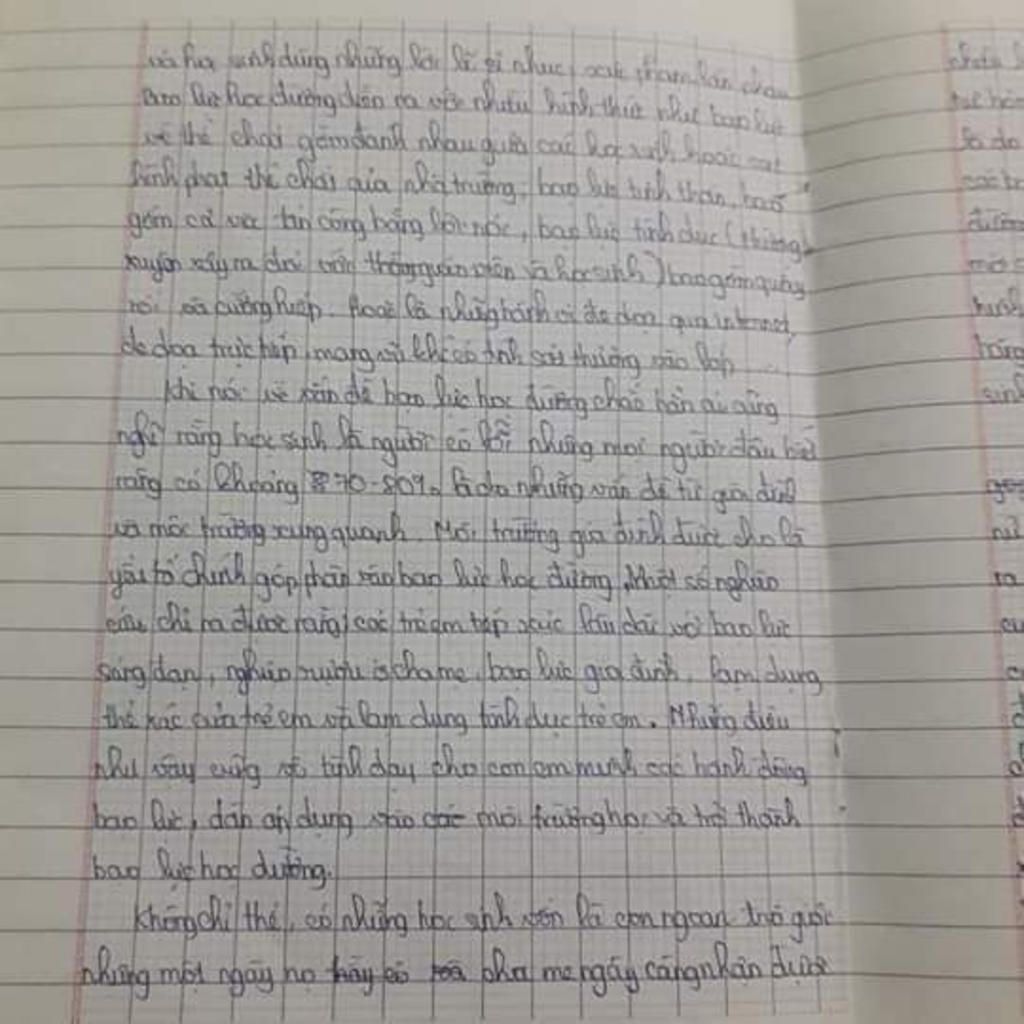 và học sinh dùng những lời lẽ sỉ nhục,
bạo lực học đường diễn ra với nhiều hình thức như bạo lực
về thể chất gồm đánh nhau giữa các học sinh hoặc các
hình phạt thể chất của nhà trường, bạo lực tinh thần, bao
gồm cả việc tấn công bằng lời nói, bạo lực tình dục (thường
xuyên xảy ra đối với giáo viên và học sinh) bao gồm quấy
rối và cưỡng hiếp. Hoặc là những hành vi đe dọa qua internet,
đe dọa trực tiếp, mang vũ khí có tính sát thương vào lớp
Khi nói về vấn đề bạo lực học đường chắc hẳn ai cũng
nghĩ rằng học sinh là người có lỗi nhưng mọi người đâu biết
rằng có khoảng 70-80% là do những vấn đề từ gia đình
và môi trường xung quanh. Môi trường gia đình được cho là
yếu tố chính góp phần vào bạo lực học đường. Một số nghiên
cứu chỉ ra được rằng, các trẻ em tiếp xúc lâu dài với bạo lực
súng đạn, nghiện rượu ở cha mẹ, bạo lực gia đình, lạm dụng
thể xác của trẻ em và lạm dụng tình dục trẻ em. Những điều
như vậy cũng vô tình dạy cho con em mình các hành động
bạo lực, dẫn áp dụng vào môi trường học và trở thành
bạo lực học đường.
Không chỉ thế, có những học sinh vốn là con ngoan trò giỏi
nhưng một ngày nọ cha mẹ ngày càng nhận được